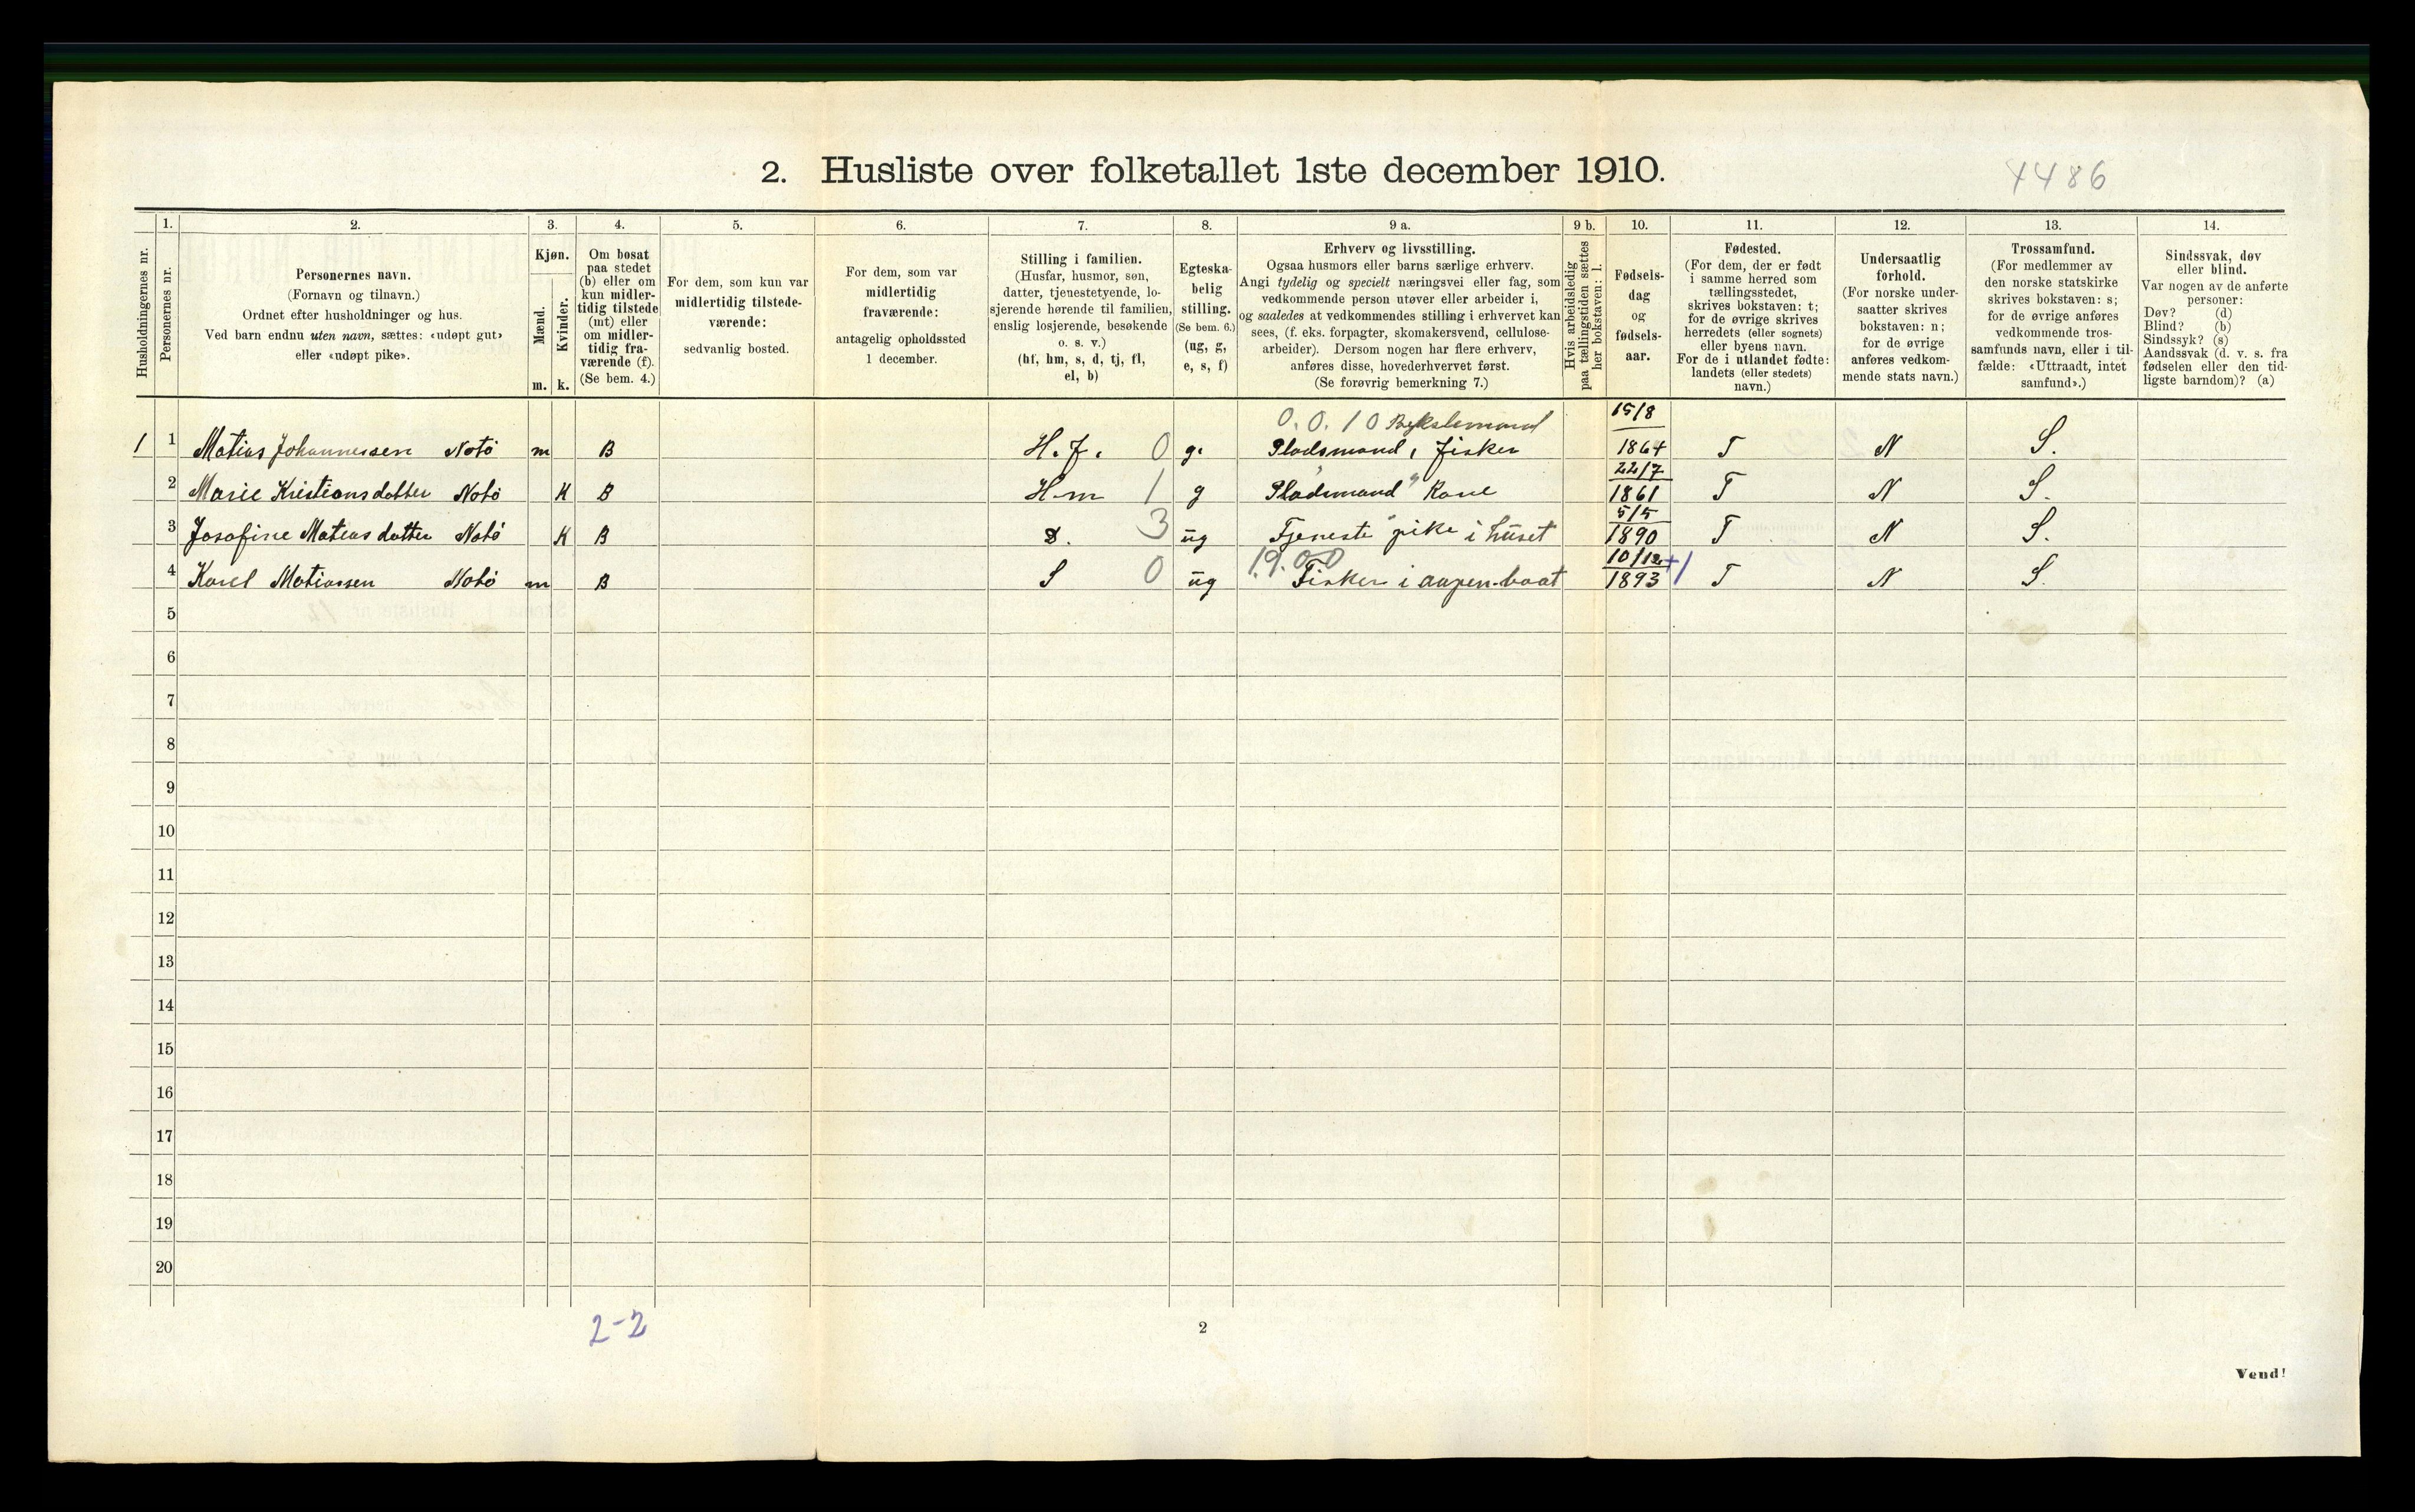 2. Husliste over folketallet 1ste december 1910.
4486
Husholdningernes nr.
1.
Personernes nr.
2.
Personernes navn.
(Fornavn og tilnavn.)
Ordnet efter husholdninger og hus.
Ved barn endnu uten navn, sættes: «udøpt gut»
eller «udøpt pike».
3.
Kjøn.
Mænd.
Kvinder.
m. k.
4.
Om bosat
paa stedet
(b) eller om
kun midler-
tidig tilstede
(mt) eller
om midler-
tidig fra-
værende (f).
(Se bem. 4.)
5.
For dem, som kun var
midlertidig tilstede-
værende:
sedvanlig bosted.
6.
For dem, som var
midlertidig
fraværende:
antagelig opholdssted
1 december.
7.
Stilling i familien.
(Husfar, husmor, søn,
datter, tjenestetyende, lo-
sjerende hørende til familien,
enslig losjerende, besøkende
o. s. v.)
(hf, hm, s, d, tj, fl,
el, b)
8.
Egteska-
belig
stilling.
(Se bem. 6.)
(ug, g,
e, s, f)
9 a.
Erhverv og livsstilling.
Ogsaa husmors eller barns særlige erhverv.
Angi tydelig og specielt næringsvei eller fag, som
vedkommende person utøver eller arbeider i,
og saaledes at vedkommendes stilling i erhvervet kan
sees, (f. eks. forpagter, skomakersvend, cellulose-
arbeider). Dersom nogen har flere erhverv,
anføres disse, hovederhvervet først.
(Se forøvrig bemerkning 7.)
9 b.
Hvis arbeidsledig
paa tællingstiden sættes
her bokstaven: l.
10.
Fødsels-
dag
og
fødsels-
aar.
11.
Fødested.
(For dem, der er født
i samme herred som
tællingsstedet,
skrives bokstaven: t;
for de øvrige skrives
herredets (eller sognets)
eller byens navn.
For de i utlandet fødte:
landets (eller stedets)
navn.)
12.
Undersaatlig
forhold.
(For norske under-
saatter skrives
bokstaven: n;
for de øvrige
anføres vedkom-
mende stats navn.)
13.
Trossamfund.
(For medlemmer av
den norske statskirke
skrives bokstaven: s;
for de øvrige anføres
vedkommende tros-
samfunds navn, eller i til-
fælde: «Uttraadt, intet
samfund».)
14.
Sindssvak, døv
eller blind.
Var nogen av de anførte
personer:
Døv? (d)
Blind? (b)
Sindssyk? (s)
Aandssvak (d. v. s. fra
fødselen eller den tid-
ligste barndom)? (a)
0.0.10 Bykslemand 15/8
1 1 Matias Johannessen Notö m B H.f. 0 g. Pladsmand, fisker 1864 T N S.
22/7
2 Marie Kristiansdatter Notö K B Hm 1 g Pladsmand" Kone 1861 T N S.
5/5
3 Josefine Matiasdatter Notö K B D. 3 ug Tjeneste pike i huset 1890 T N S.
19.00 10/12 +1
4 Karel Matiassen Notö m B S 0 ug Fisker i aapen-baat 1893 T N S.
5
6
7
8
9
10
11
12
13
14
15
16
17
18
19
20
2-2
2
Vend!